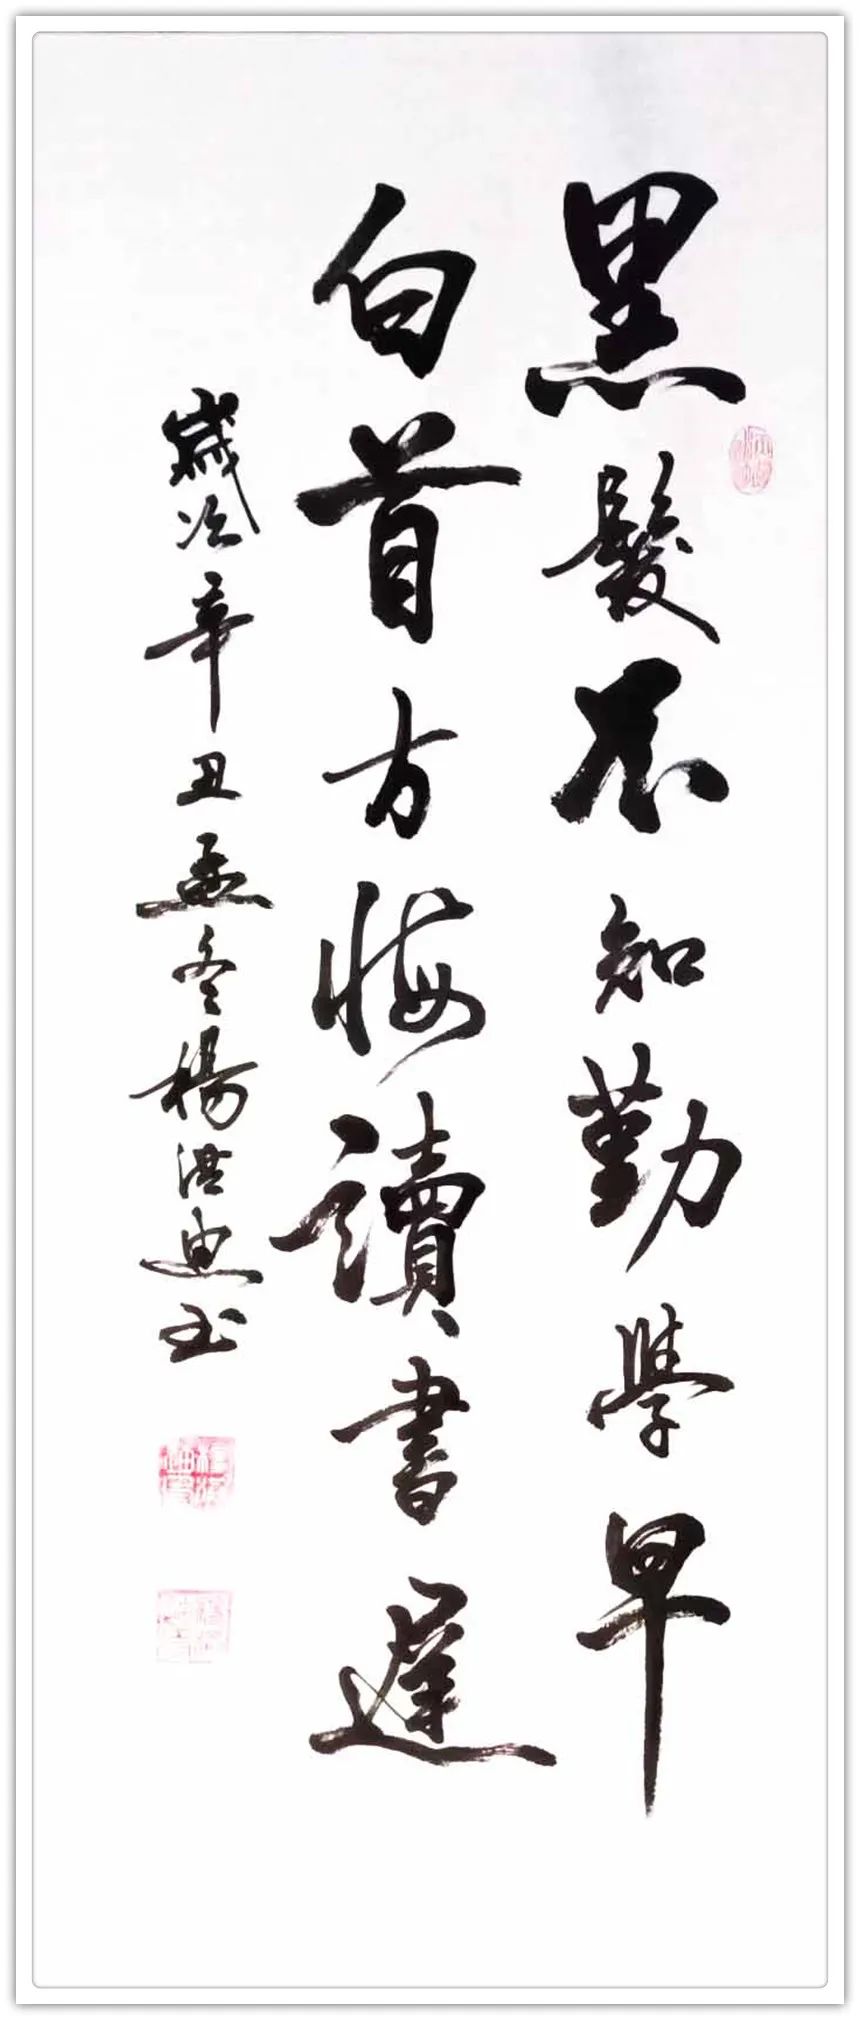 黑髮不知勤學早
白首方悔讀書遲
歲次辛丑孟冬楊洪迪书